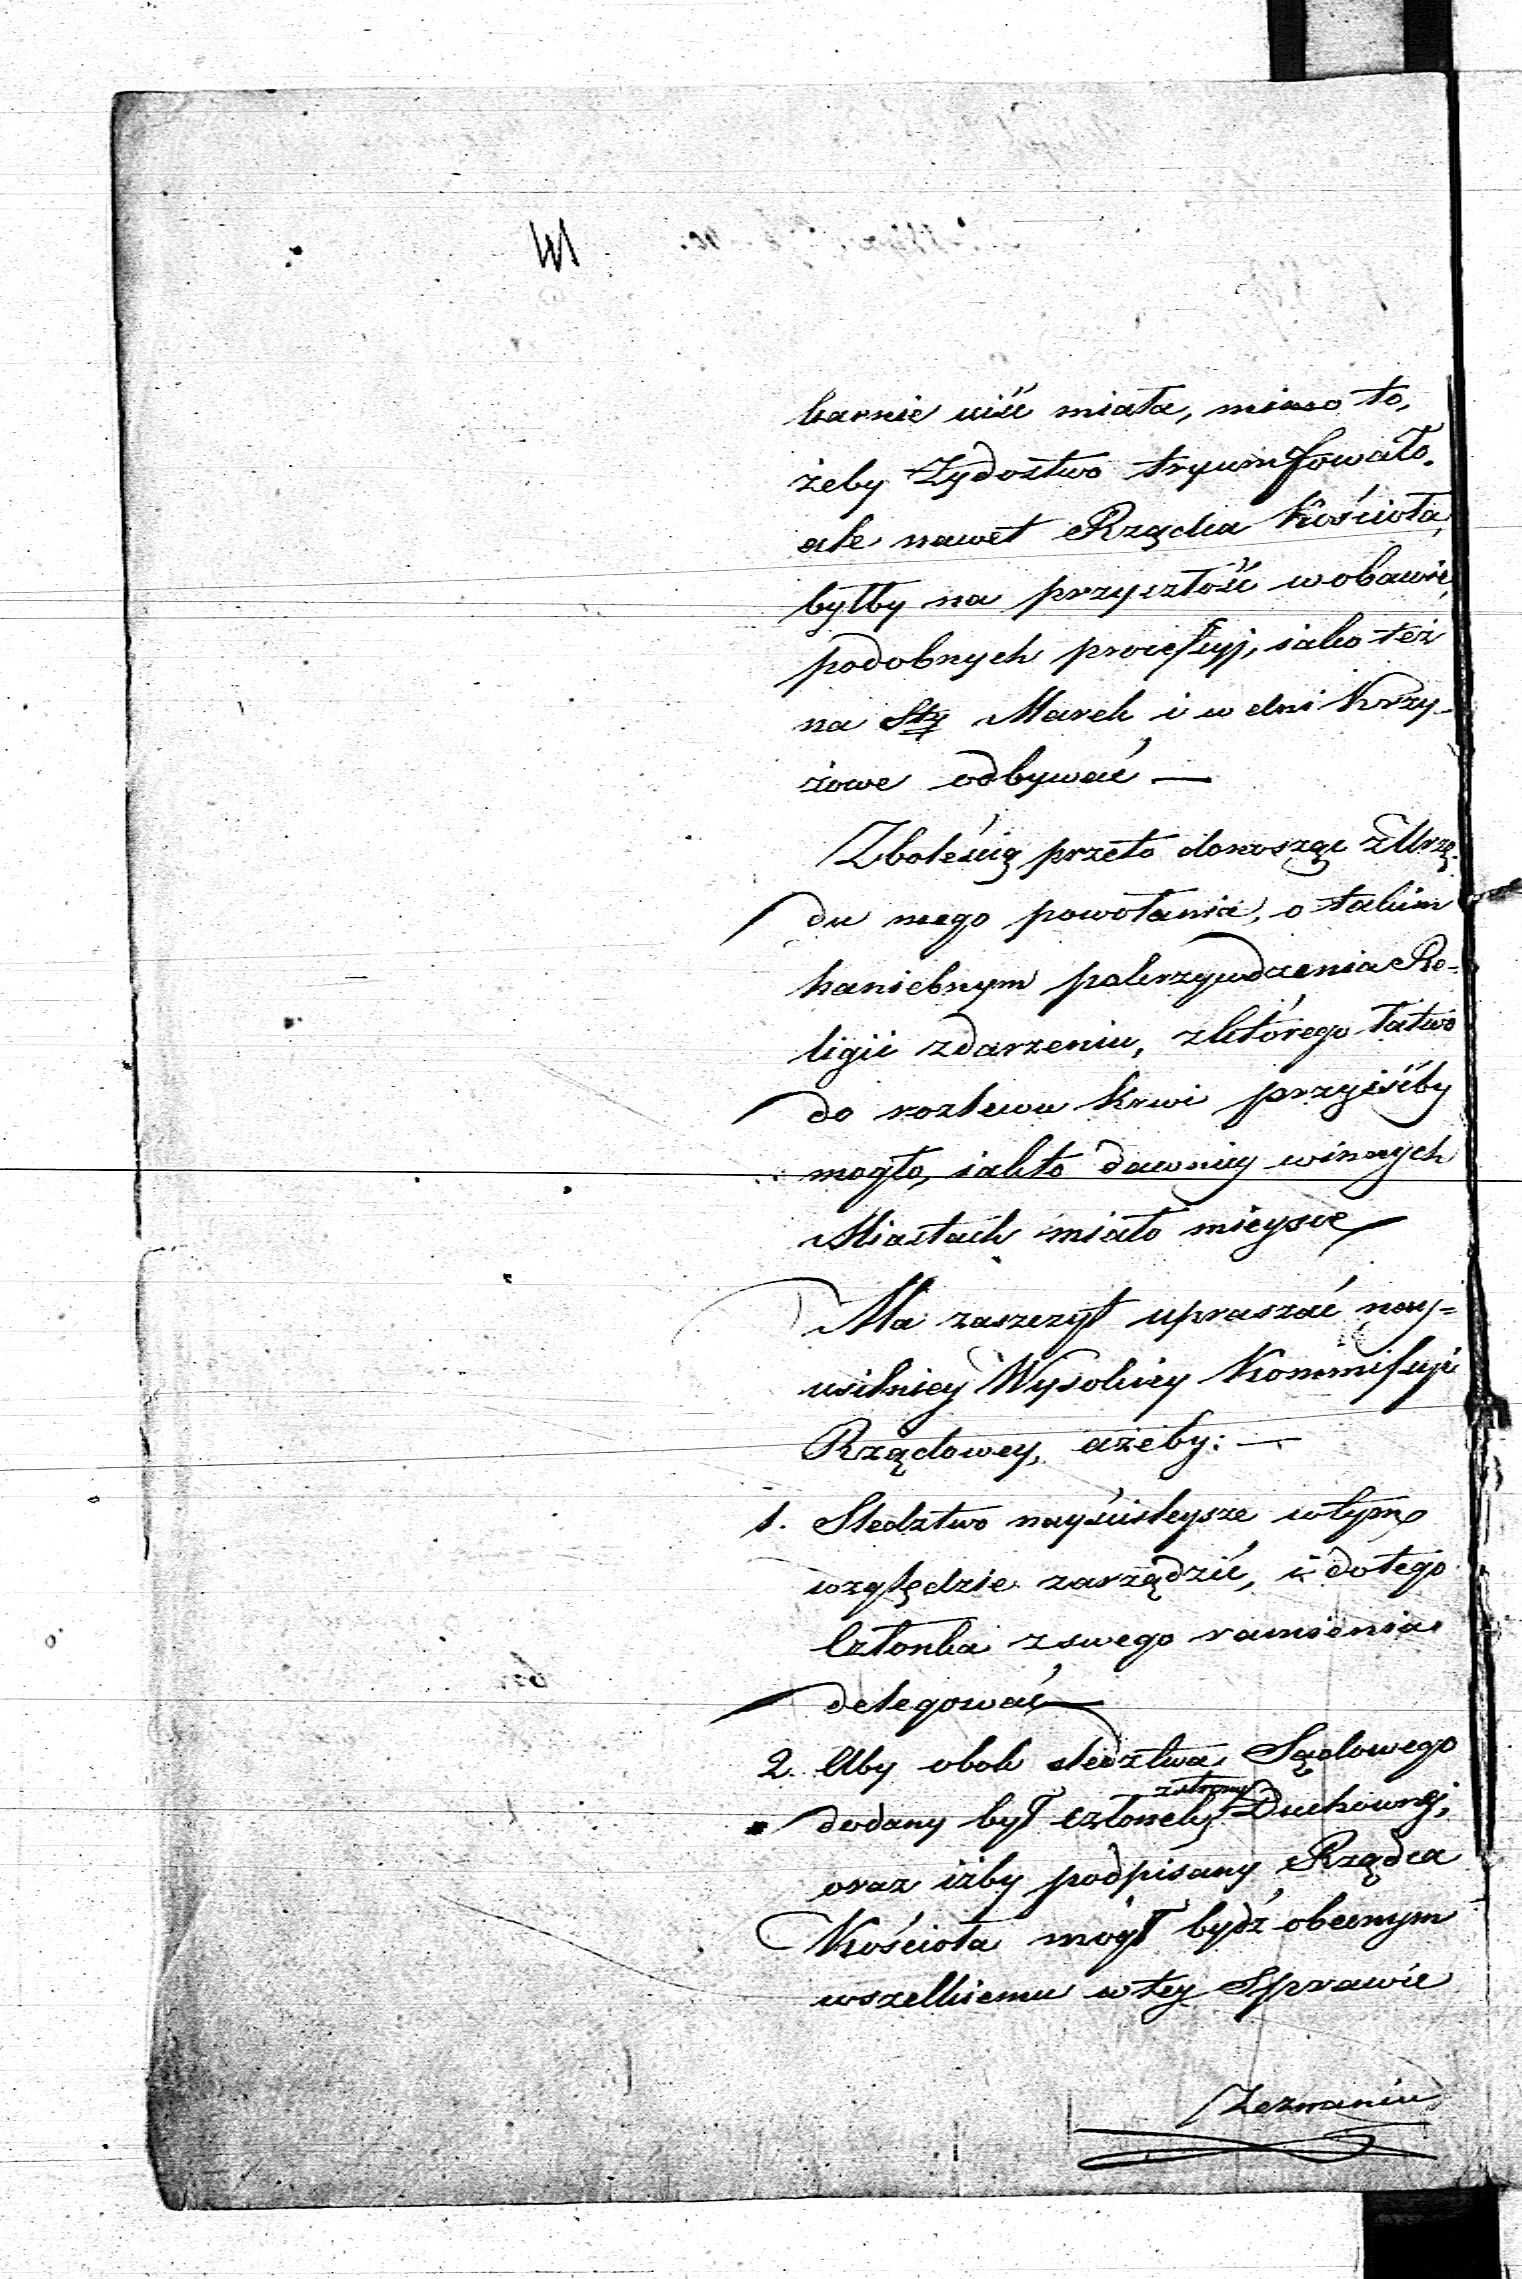 karnie uiść miała, mimo to,
żeby Żydostwo tryumfowało,
ale nawet Rządca Kościoła,
byłby na przyszłość w obawie,
podobnych processyj, iako też
na Sty Marek i w dni Krzy-
żowe odbywać —
Z boleścią przeto donosząc z Urzę-
du mego powołania, o takim
haniebnym pokrzywdzenia Re-
ligii zdarzeniu, z którego łatwo
do rozlewu krwi przyiśćby
mogło, iak to dawniey w innych
Miastach miało mieysce
Ma zaszczyt upraszać nay=
usilniey Wysokiey Kommissyi
Rządowey, ażeby: —
1. Sledztwo nayściśleysze w tym
względzie zarządzić, i do tego
Członka z swego ramienia
delegować —
2. Aby obok śledztwa Sądowego
dodany był członek z strony Duchowney,
oraz iżby podpisany Rządca
Kościoła mógł bydź obecnym
wszelkiemu w tey Sprawie
Zeznaniu